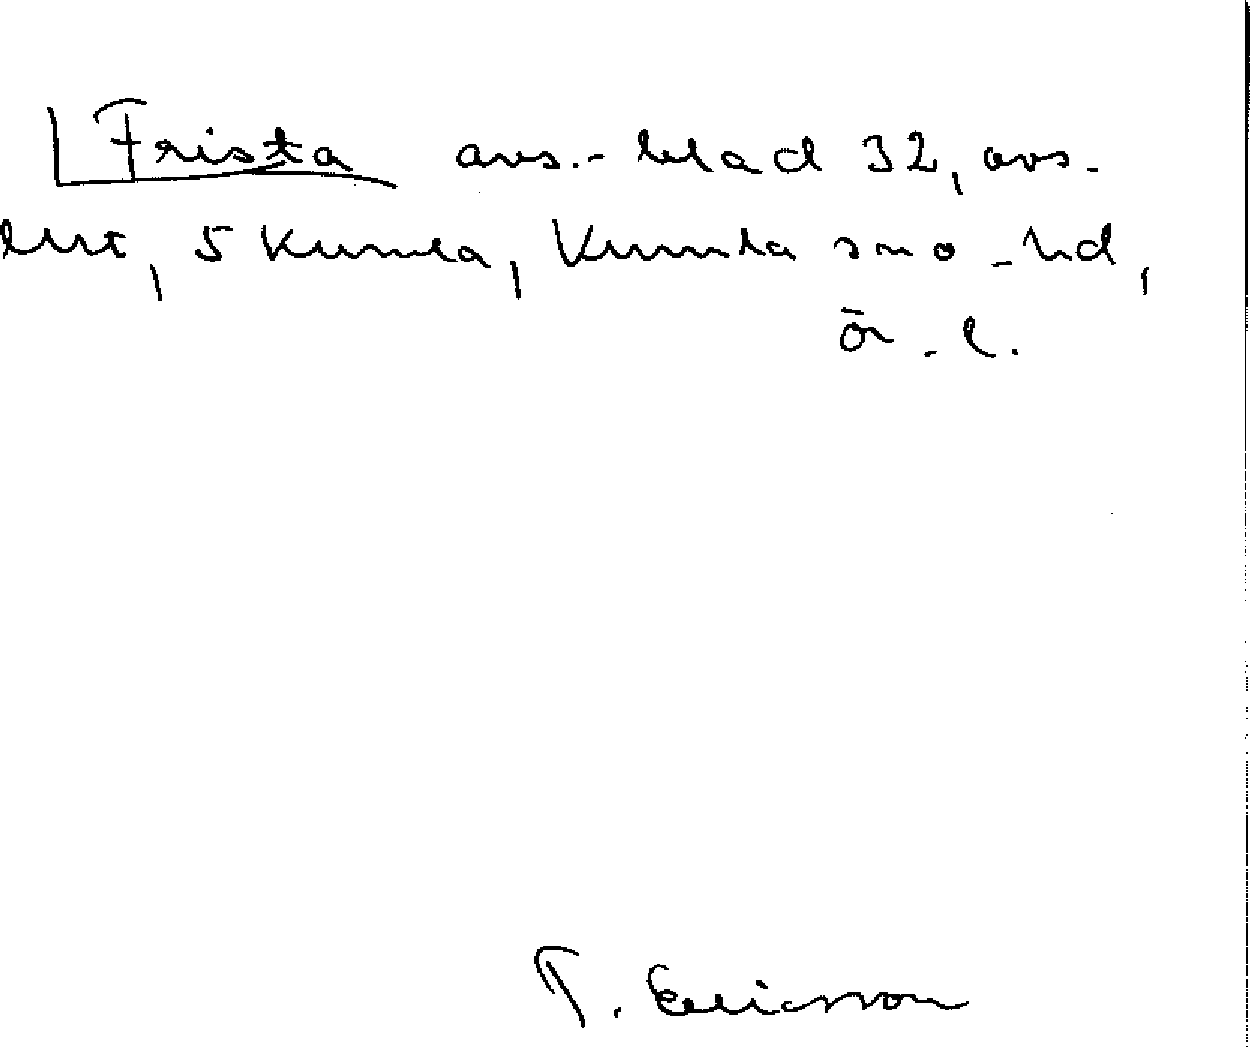 Frista avs.-blad 32, avs.
lut, 5 Kumla, Kumla sno-hd,
ör. l.
T. Ericsson